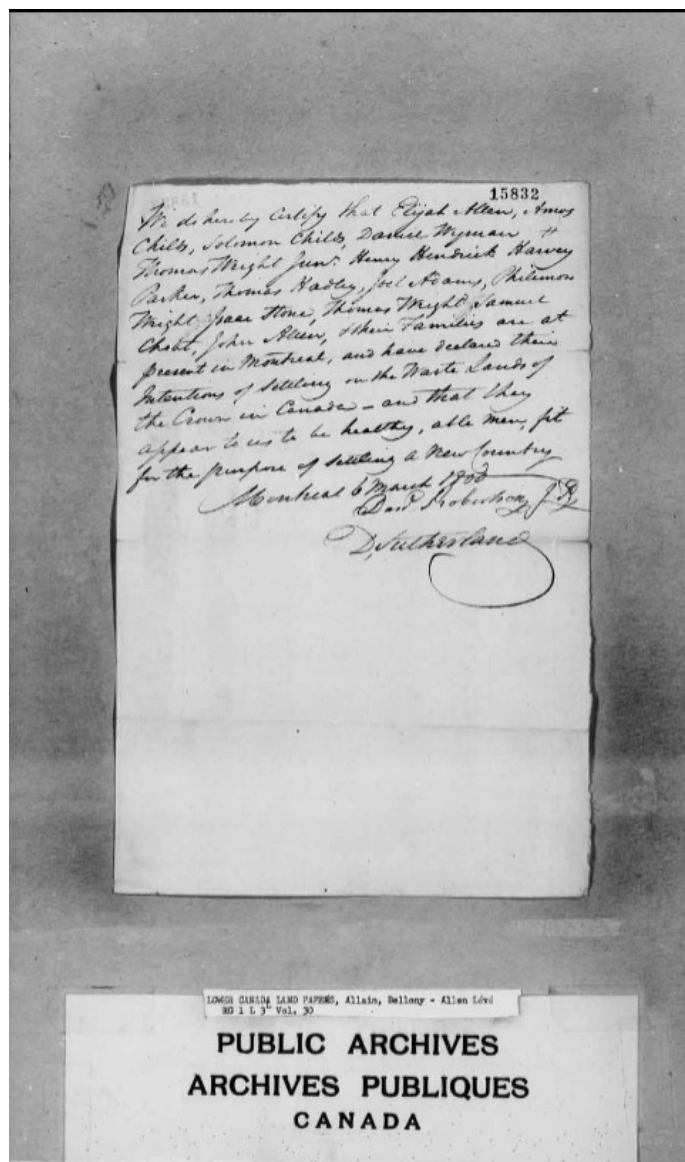 15832
We do hereby Certify that Elijah Allen, Amos
Childs, Solomon Childs, Daniel Wyman
Thomas Wright Junr. Henry Hendrick Harvey
Parker, Thomas Hadley, Joel Adams, Philemon
Wright Isaac Stone, Thomas Wright, Samuel
Choat, John Allen, & their Families are at
present in Montreal, and have declared their
Intentions of Settling on the Waste Lands of
the Crown in Canada – and that they
appear to us to be healthy, able men, fit
for the purpose of settling a New Country
Montreal 6 March 1800
Davd. Robertson, J.P.
D, Sutherland
LOWER CANADA LAND PAPERS, Allain, Bellony - Allen Lévé
RG 1 L 3L Vol. 30
PUBLIC ARCHIVES
ARCHIVES PUBLIQUES
CANADA